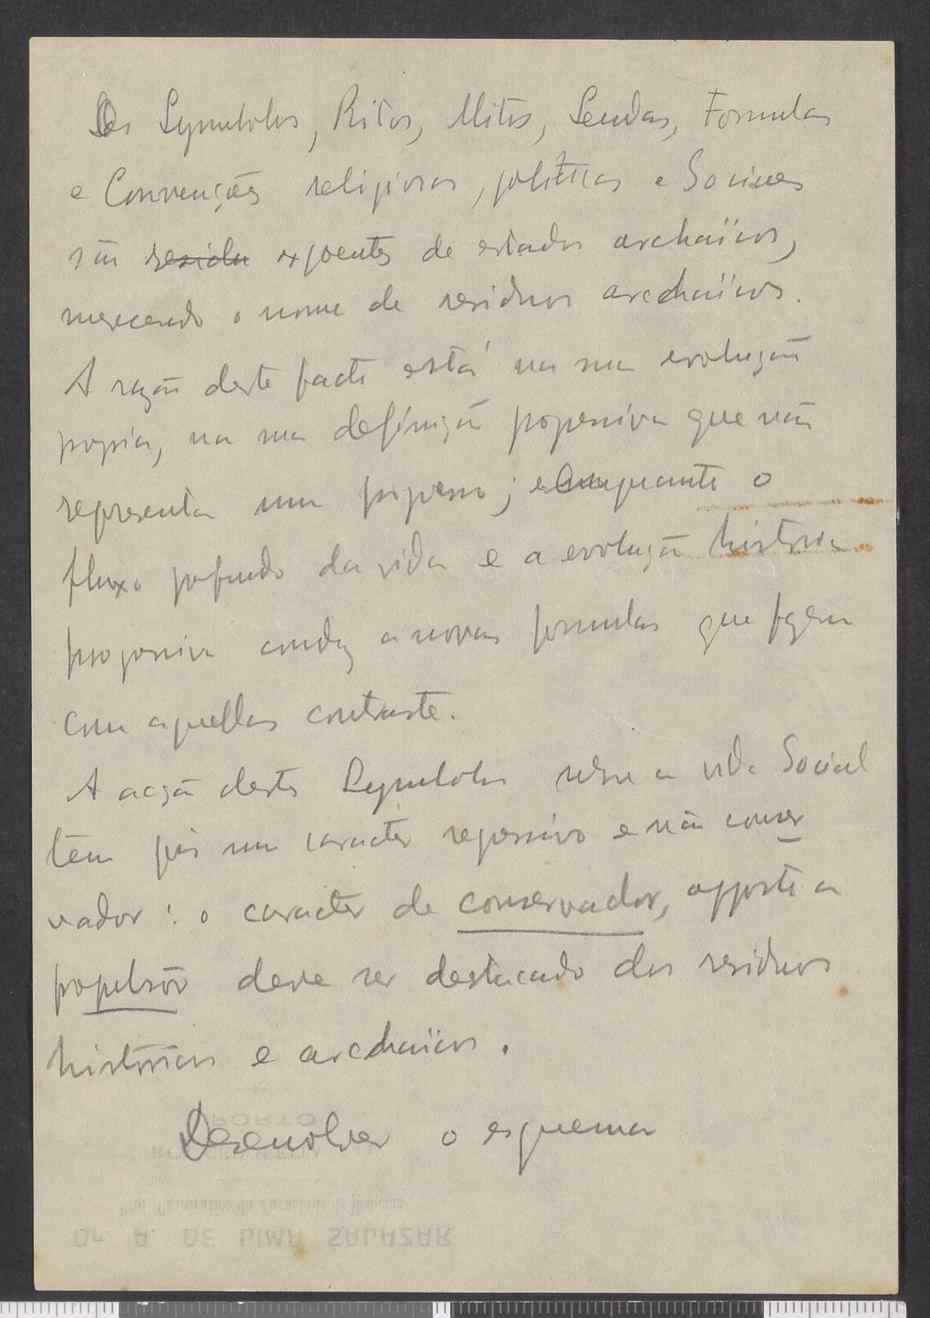 Os Symbolos, Ritos, Mitos, Lendas, Formulas
e Convenções religiosas, politicas e Sociaes
são residu expoentes de estados archaïcos,
merecendo o nome de residuos archaïcos.
A razão deste facto está na sua evolução
propria, na sua definição progressiva que não
representa um progresso; emquanto o
fluxo profundo da vida e a evolução historica
progressiva conduz a novas formulas que fazem
com aquellas contraste.
A acção destes Symbolos sobre a vida Social
têm pois um caracter regressivo e não conser
vador: o caracter de conservador, opposto a
propulsôr deve ser destacado dos residuos
historicos e archaïcos.
Desenvolver o esquema
PORTO
Dr. A. DE LIMA SALAZAR